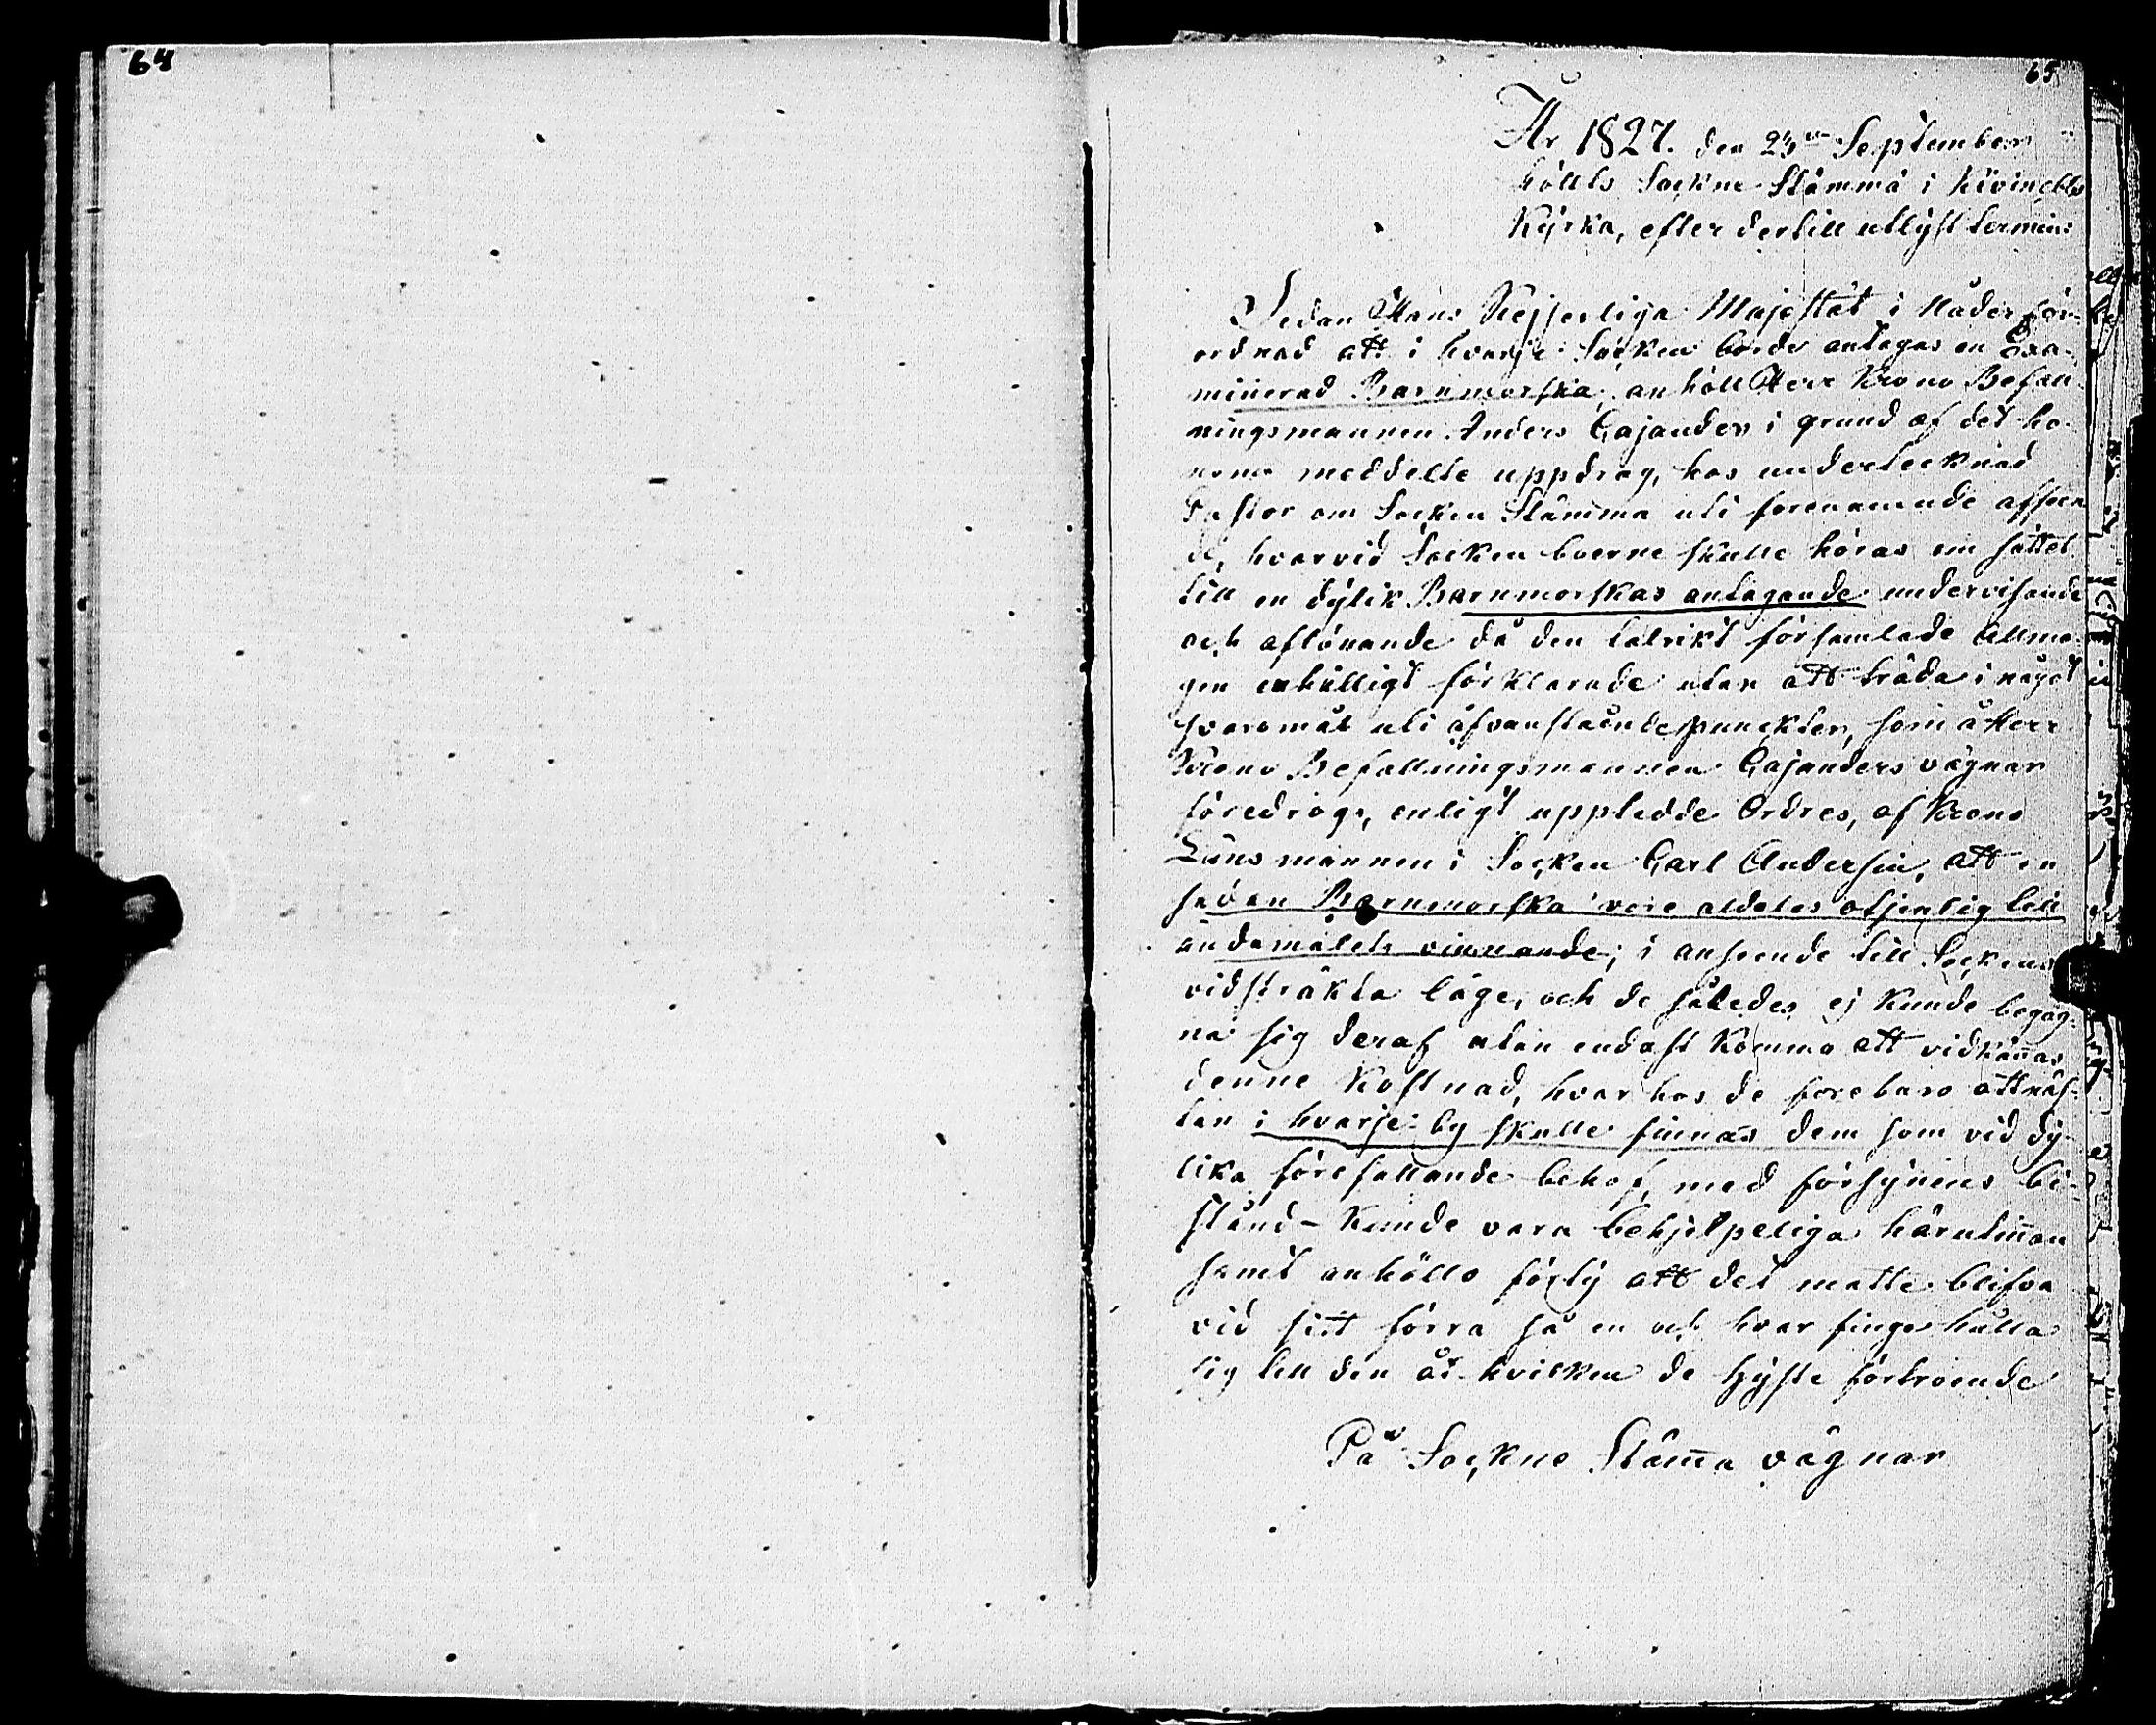 64
65
År 1827. den 23de September
hölts Sockne Stämma i Kivinebbs
Kyrka, efter dertill utlyst termin:
Sedan Hans Kejserliga Majestät i Nåder för-
ordnad att i hvarje Socken borde antagas en Exa-
minerad Barnmorska, anhöll Herr Krono Befall-
ningsmannen Anders Cajander i grund af det ho-
nom meddelte uppdrag, hos undertecknad
Pastor om Socken Stämma uti förenämnde afseen
de, hvarvid Socken boerne skulle höras om sättet
till en dylik Barnmorskas antagande undervisande
och aflönande då den talrikt församlade Allmo-
gen enhälligt förklarade utan att träda i något
svaromål uti åfvanstående punckter, som å Herr
Krono Befallningsmannen Cajanders vägnar
föredrogs, enligt uppledde Ordres, af Krono
Länsmannen i Socken Carl Andersin, att en
sådan Barnmorska vore aldeles otjenlig till
ändamålets vinnande; i anseende till Sockens
vidsträkta läge, och de således ej kunde begag-
na sig deraf utan endast komma att vidkännas
denne kostnad, hvarhos de förebaro att näs-
tan i hvarje by skulle finnas dem som vid dy-
lika förefallande behof, med försynens bi-
stånd - kunde vara behjelpeliga härutinnan
samt anhöllo förty att det måtte blifva
vid sitt förra så en och hvar finge hålla
sig till den åt hvilken de hyste förtroende
På Sockne Stämma vägnar